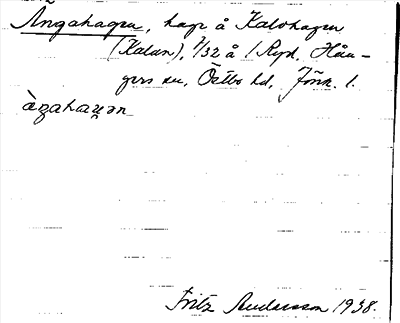 Ängahagen, hage å Kalvhagen
(Kalan), 7/32 å 1 Ryd, Hån-
gers sn, Östbo hd, Jönk. l.
àgahaɡən
Fritz Andersson 1938.